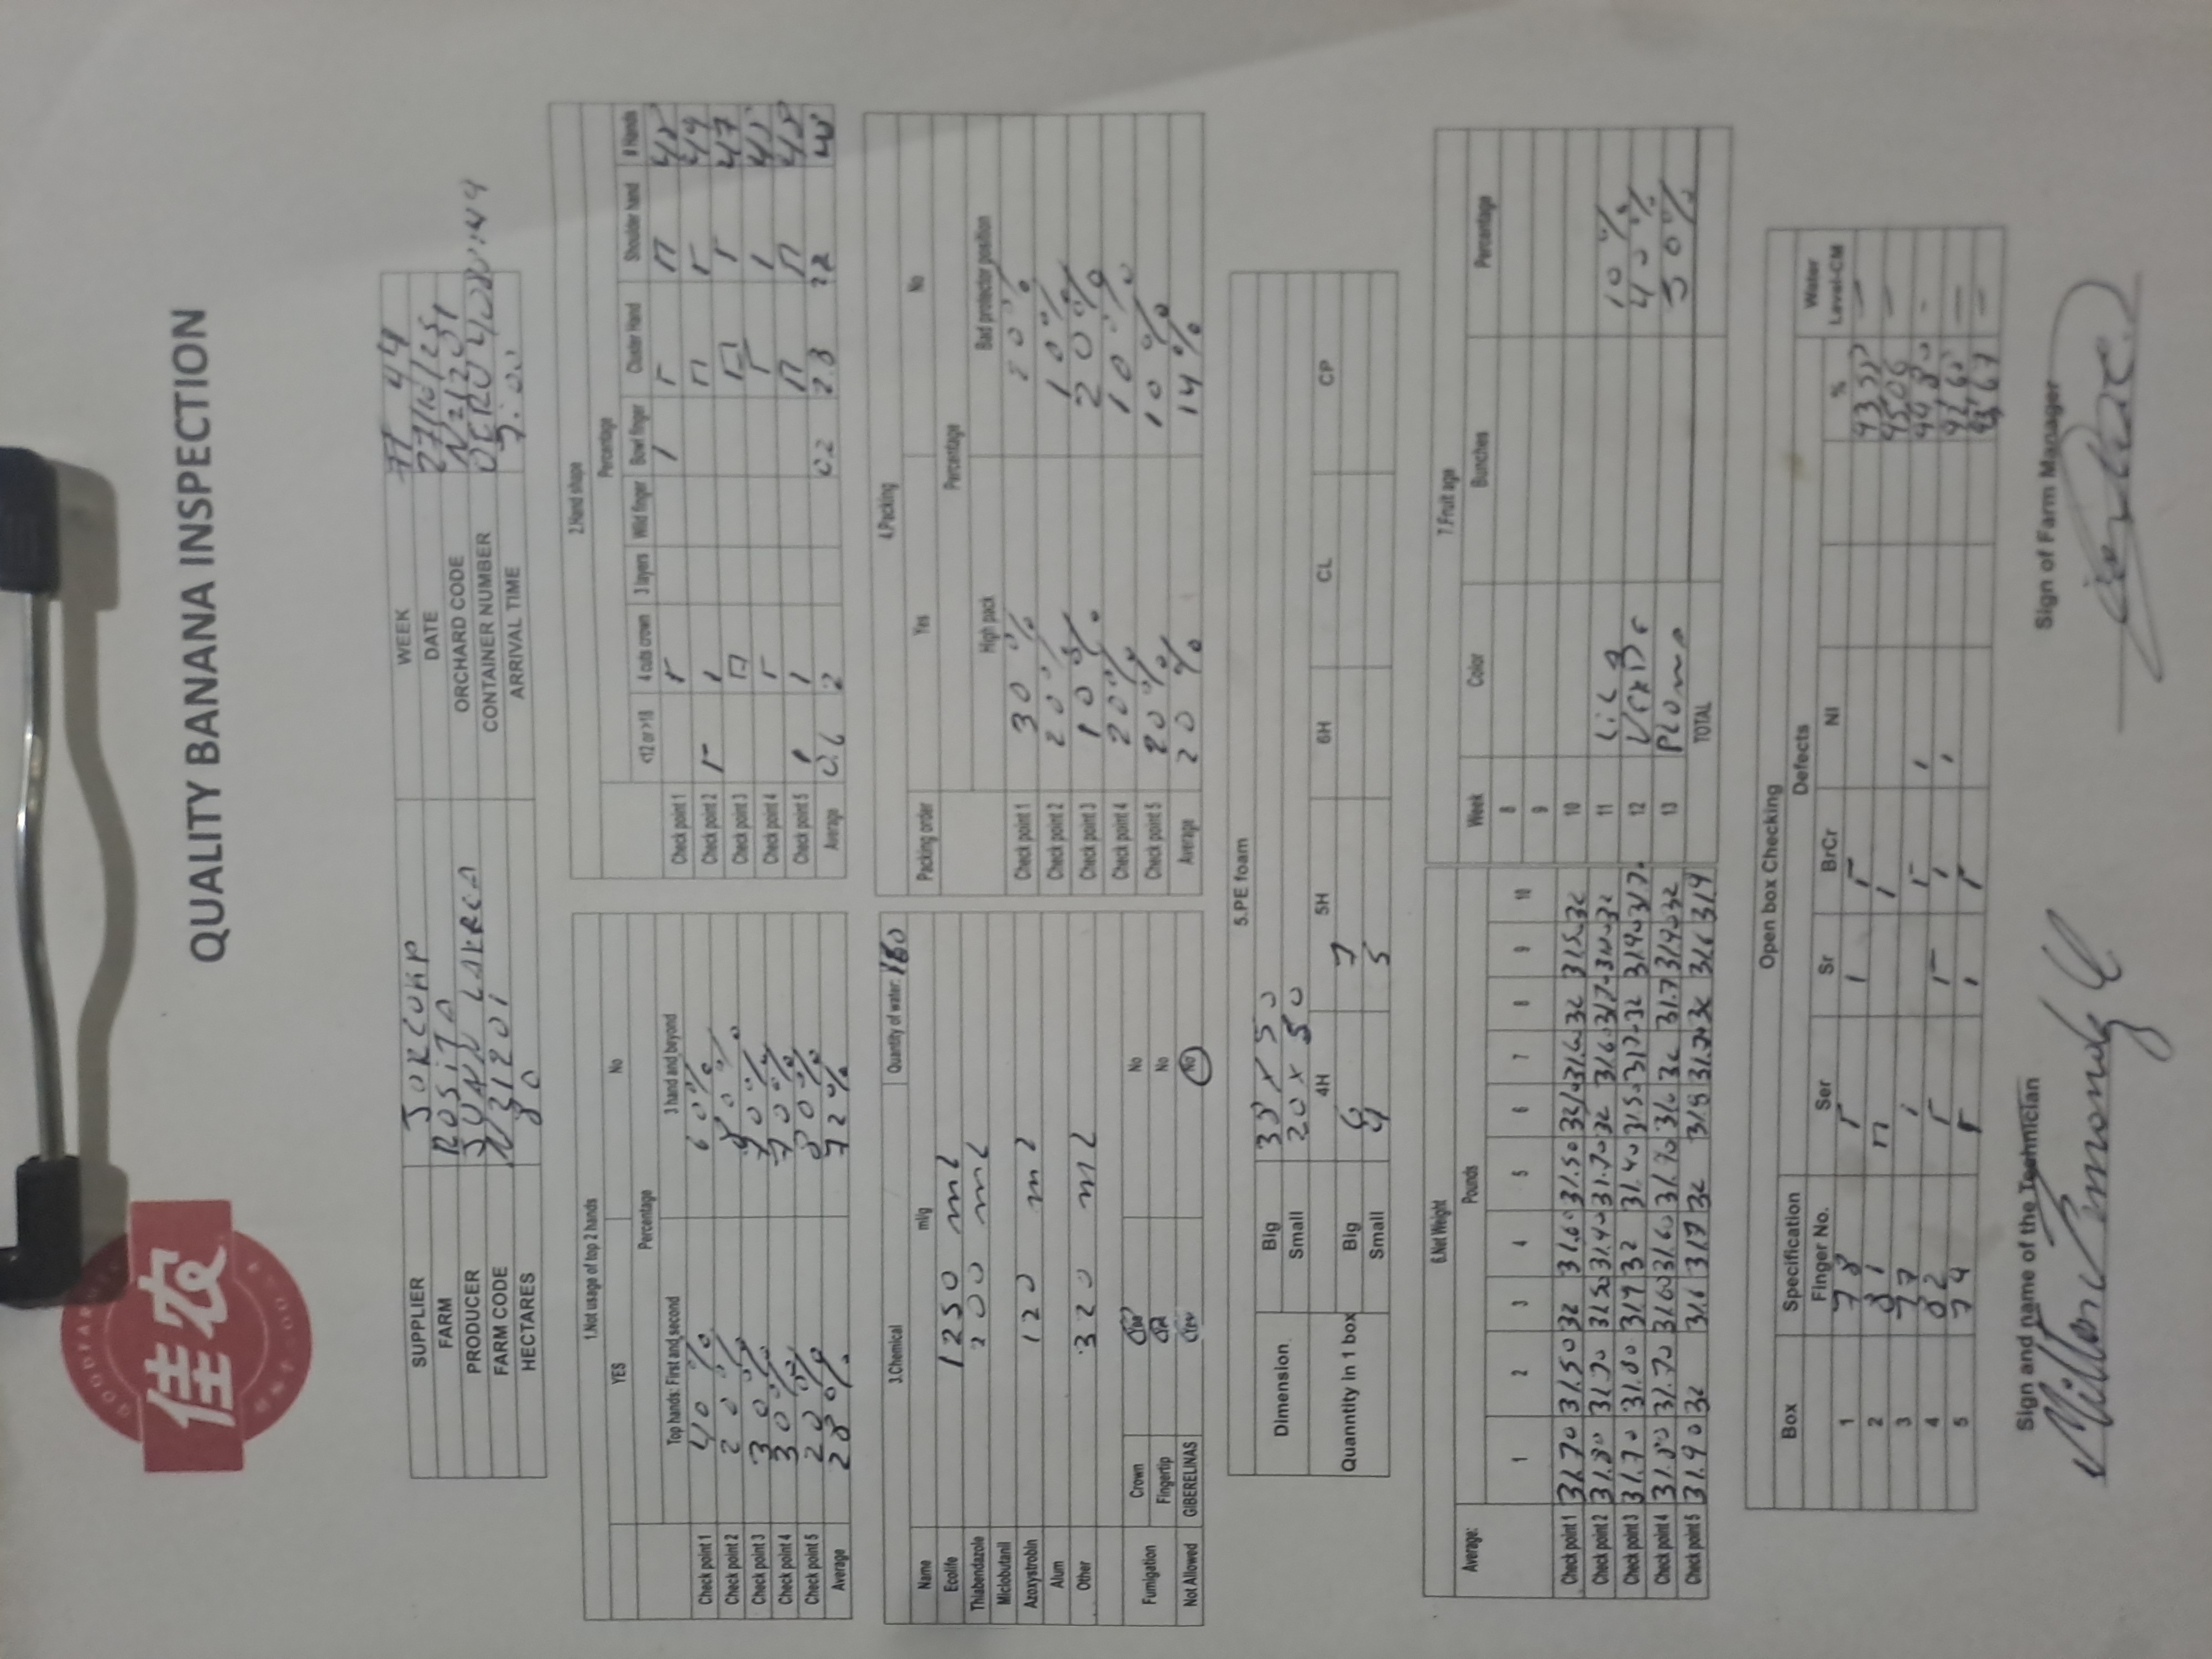 GOODFARMER
佳农
QUALITY BANANA INSPECTION
SUPPLIER JORCORP WEEK 44
FARM ROSITA DATE 27/10/25
PRODUCER JUAN LARREA ORCHARD CODE N21201
FARM CODE N21201 CONTAINER NUMBER
HECTARES 80 ARRIVAL TIME 7:00
1.Not usage of top 2 hands
YES No
Percentage
Top hands: First and second 3 hand and beyond
Check point 1 40 % 60%
Check point 2 20% 80%
Check point 3 30% 70%
Check point 4 30% 70%
Check point 5 20% 80%
Average 28% 72%
2.Hand shape
Percentage
<12 or >18 4 cuts crown 3 layers Wild finger Bowl finger Cluster Hand Shoulder hand # Hands
Check point 1
Check point 2 49
Check point 3 47
Check point 4
Check point 5 48
Average 0.6 2 0.2 2.8
3.Chemical Quantity of water: 160
Name ml/g
Ecolife 1250 ml
Thiabendazole 200 ml
Miclobutanil
Azoxystrobin 120 ml
Alum
Other 320 ml
Fumigation Crown Yes No
Fingertip No
Not Allowed GIBERELINAS Yes No
4.Packing
Packing order Yes No
Percentage
High pack Bad protector position
Check point 1 30 % 20%
Check point 2 20% 10%
Check point 3 10%. 20%
Check point 4 20% 10%
Check point 5 20% 10%
Average 20 % 14%
5.PE foam
Dimension Big 38 x 50
Small 20 x 50
4H 5H 6H CL CP
Quanntity in 1 box Big 6 7
Small 4 5
6.Net Weight
Average: Pounds
1 2 3 4 5 6 7 8 9 10
Check point 1 31.70 31.50 32 31.60 31.50 31.6 32 31.5 32
Check point 2 31.80 31.70 31.50 31.40 31.70 32 31.6 31.7 32
Check point 3 31.70 31.80 31.9 32 31.40 31.5 31.7 32 31.90 31.7
Check point 4 31.80 31.70 31.60 31.60 31.90 32 31.7 31.90 32
Check point 5 31.90 32 31.6 31.7 32 31.8 31.7 32 31.6 31.9
7.Fruit age
Week Color Bunches Percentage
8
9
10
11 LiLa 10 %
12 VERDE 40 %
13 PLomo 50%
TOTAL
Open box Checking
Box Specification Defects Water
Finger No. Ser Sr BrCr NI % Level-CM
1 78
2 81 95,06
3 77
4 82
5 79 93,67
Sign and name of the Technician
Sign of Farm Manager
Milton